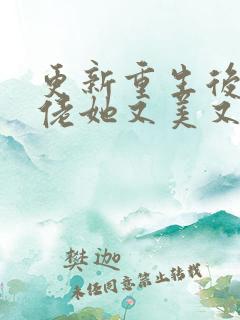 更新重生後
佬她又美又
樊迦
未任同意禁止转载